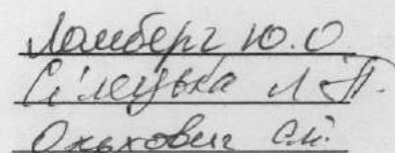 Ломберг Ю.О
Сілецька Л.П.
Ольхович С.М.